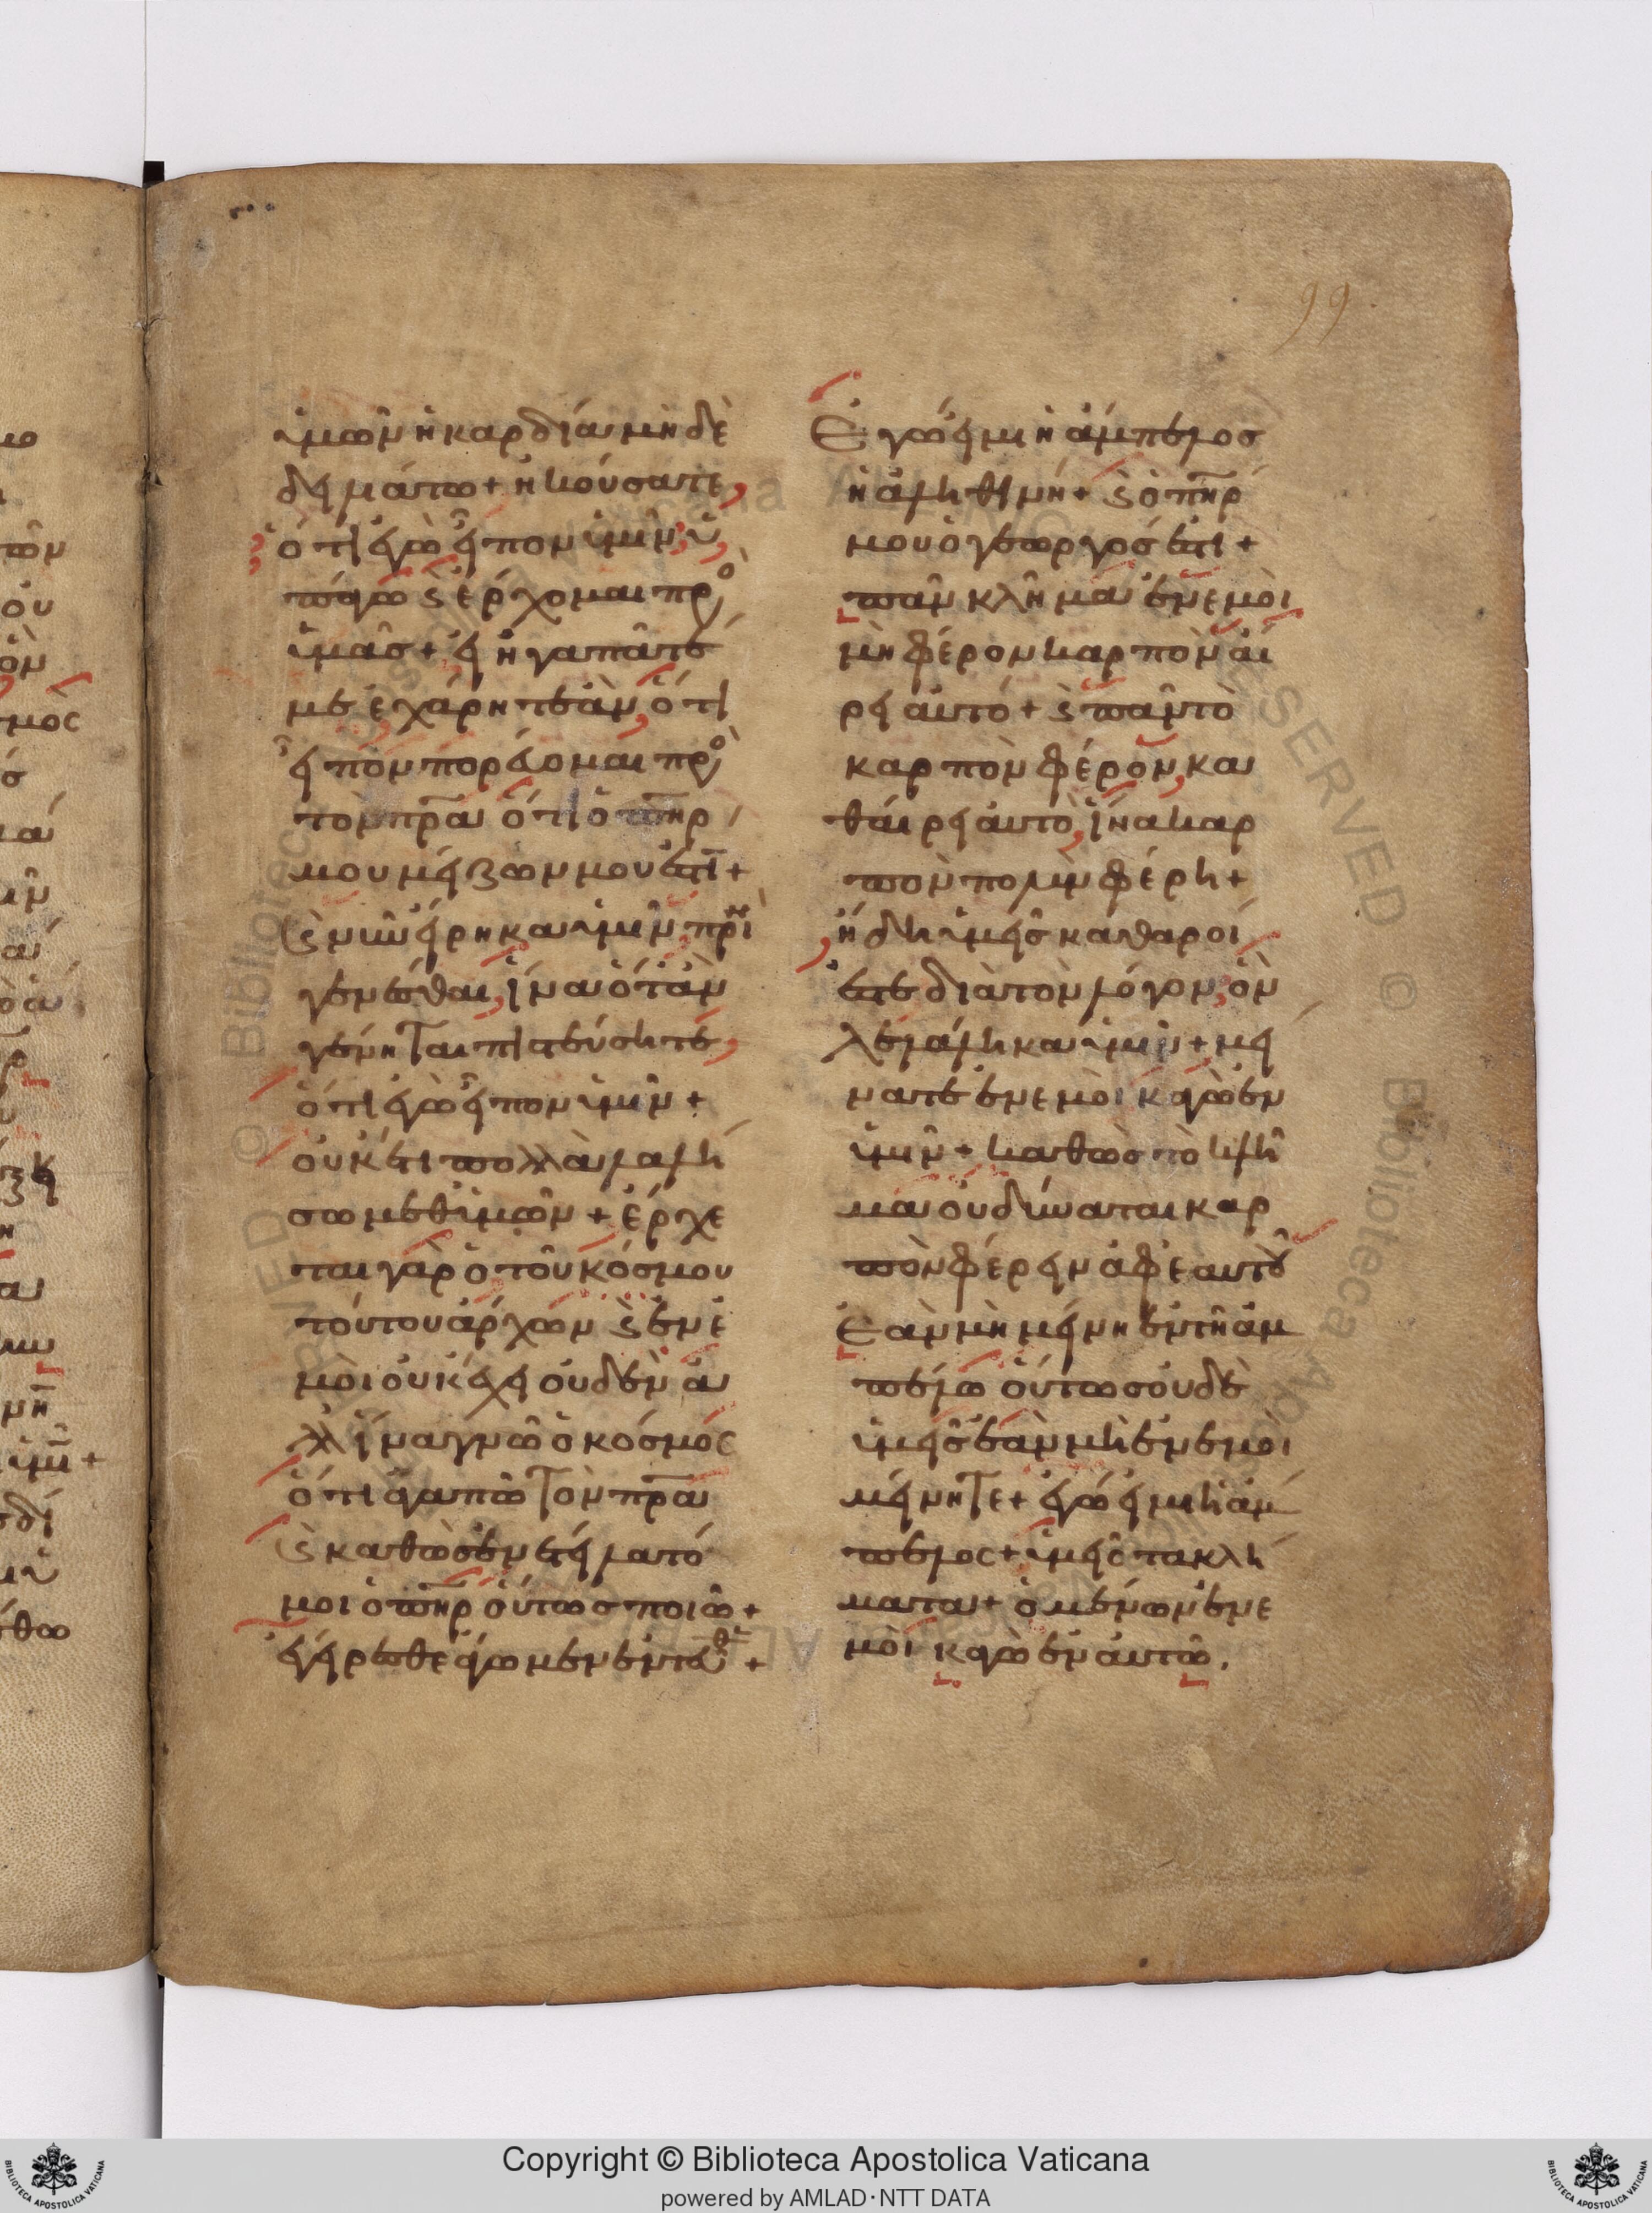 99
ὑμῶν ἡ καρδία μὴ δὲ
δειλιάτω + ἠκούσατε,
ὅτι ἐγὼ εἶπον ὑμῖν, ὑ
πάγω ϗ ἔρχομαι πρὸ
ὑμᾶσ + εἰ ἠγαπᾶτέ
με ἐχάρητε ἂν, ὅτι
εἶπον πορεύομαι πρὸ
τὸν πρ̅α ὅτι ὁ πη̅ρ
μου μείζων μου ἐστὶ +
ϗ νῦν εἴρηκα ὑμῖν πρὶ
γενέσθαι, ἵνα ὅταν
γένηται πιστεύσητε,
ὅτι ἐγὼ εἶπον ὑμῖν +
οὐκέτι πολλὰ λαλή
σω μεθ ὑμῶν + ἔρχε
ται γὰρ ὁ τοῦ κόσμου
τούτου ἄρχων ϗ ἐν ἐ
μοὶ οὐκ ἔχει οὐδὲν ἀ
λλ ἵνα γνῶ ὁ κόσμος
ὅτι ἀγαπῶ τὸν πρ̅α
ϗ καθὼσ ἐνετείλατό
μοι ὁ πη̅ρ οὕτωσ ποιῶ +
ἐγείρεσθε ἄγωμεν ἐντεῦθ +
Ἐγώ εἰμι ἡ ἄμπελοσ
ἡ ἀληθινή + ϗ ὁ πη̅ρ
μου ὁ γεωργόσ ἐστι +
πᾶν κλῆμα ἐν ἐμοὶ
μὴ φέρον καρπὸν αἴ
ρει αὐτό + ϗ πᾶν τὸ
καρπὸν φέρον, κα
θαίρει αὐτὸ, ἵνα καρ
πὸν πολὺν φέρη +
ἤδη ὑμεῖσ καθαροί
ἐστε διὰ τὸν λόγον, ὃν
λελάληκα ὑμῖν + μεί
νατε ἐν ἐμοὶ κἀγὼ ἐν
ὑμῖν + καθὼσ τὸ κλῆ
μα οὐ δύναται καρ
πὸν φέρειν ἀφ ἑαυτοῦ
Ἐὰν μὴ μείνη ἐν τῆ ἀμ
πέλω οὕτωσ οὐδὲ
ὑμεῖσ ἐὰν μὴ ἐν ἐμοὶ
μείνητε + ἐγώ εἰμι ἡ ἄμ
πελος + ὑμεῖσ τα κλή
ματα + ὁ μένων ἐν ἐ
μοὶ κἀγὼ ἐν αὐτῶ.
Copyright © Biblioteca Apostolica Vaticana
powered by AMLAD·NTT DATA